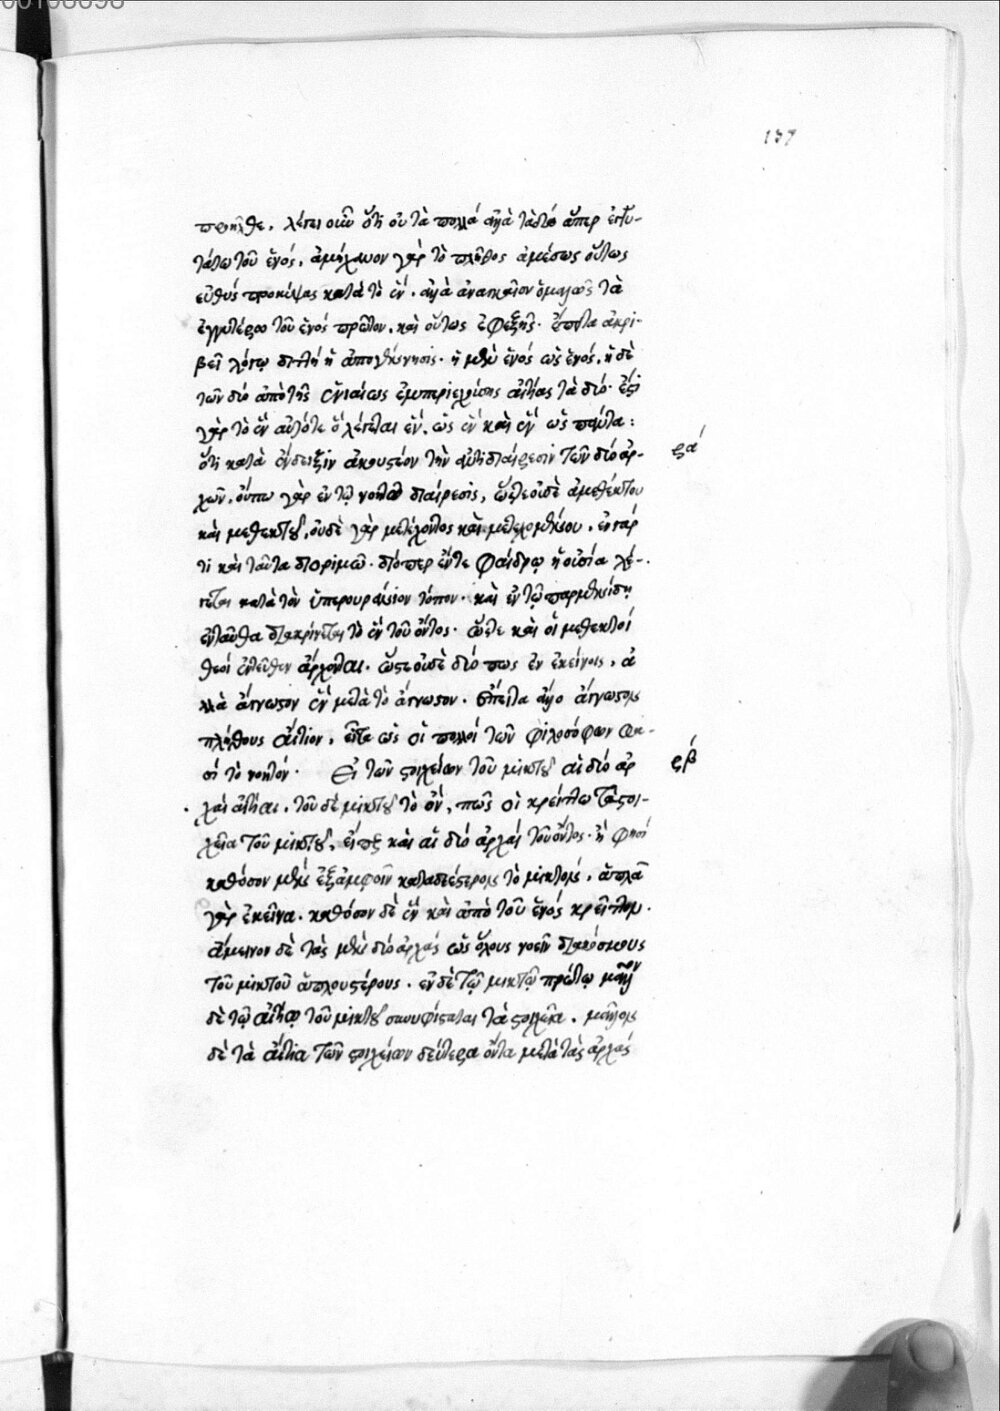 157
λέγει οὖν ὅτι οὐ τὰ πολλά ἀλλὰ τὰ δύο ἅπερ ἐγγυ-
τάτω τοῦ ἑνός. ἀμήχανον γὰρ τὸ πλῆθος ἀμέσως οὕτως
εὐθύς προκύψαι κατὰ τὸ ἕν. ἀλλὰ ἀναγκαῖον ὁμαλῶς τὰ
ἐγγυτέρω τοῦ ἑνός πρῶτον, καὶ οὕτως ἐφεξῆς. ἔπειτα ἀκρι-
βεῖ λόγῳ διττή ἡ ἀπογέννησις. ἡ μὲν ἑνός ὡς ἑνός, ἡ δὲ
τῶν δύο ἀπὸ τῆς ἑνιαίως ἐμπεριεχούσης αἰτίας τὰ δύο.
γὰρ τὸ ἓν αὐτό τε ὃ λέγεται ἕν, ὡς ἓν καὶ ἓν ὡς πάντα:
ὅτι κατὰ ἔνδειξιν ἀκουστέον τὴν ἀντιδιαίρεσιν τῶν δύο ἀρ-
ρα΄
χῶν. οὔπω γὰρ ἐν τῷ νοητῷ διαίρεσις, ὥστε οὐδὲ ἀμεθέκτου
καὶ μεθεκτοῦ, οὐδὲ γὰρ μετέχοντος καὶ μετεχομένου.
τι καὶ ταῦτα διορίμῳ. διόπερ ἔν τε Φαίδρῳ ἡ οὐσία λέ-
γεται κατὰ τὸν ὑπερουράνιον τόπον. καὶ ἐν τῷ παρμενίδῃ
ἐνταῦθα διακρίνεται τὸ ἓν τοῦ ὄντος. ὥστε καὶ οἱ μεθεκτοί
θεοί ἐντεῦθεν ἄρχονται. ὥστε οὐδὲ δύο πως ἐν ἐκείνοις, ἀ
λλὰ ἄγνωστον ἓν μετὰ τὸ ἄγνωστον. ἔπειτα ἄλλο ἄγνωστον
πλήθους αἴτιον, εἶτα ὡς οἱ πολλοί τῶν φιλοσόφων φα-
σί τὸ νοητόν. Εἰ τῶν στοιχείων τοῦ μικτοῦ αἱ δύο ἀρ
ρβ΄
χαί αἴτιαι, τοῦ δὲ μικτοῦ τὸ ὄν, πῶς οὐ κρείττω τὰ στοι-
χεῖα τοῦ μικτοῦ, εἴπερ καὶ αἱ δύο ἀρχαί τοῦ ὄντος. ἢ φησί
καθόσον μέν ἐξ ἀμφοῖν καταδεέστερον τὸ μικτόν, ἁπλᾶ
γὰρ ἐκεῖνα. καθόσον δὲ ἓν καὶ ἀπὸ τοῦ ἑνός κρεῖττον.
ἄμεινον δὲ τὰς μὲν δύο ἀρχάς ὡς ὅλους νοεῖν διακόσμους
τοῦ μικτοῦ ἁπλουστέρους. ἐν δὲ τῷ μικτῷ πρώτῳ μᾶλλον
δὲ τῷ αἰτίῳ τοῦ μικτοῦ συνυφίσταται τὰ στοιχεῖα. μᾶλλον
δὲ τὰ αἴτια τῶν στοιχείων δεύτερα ὄντα μετὰ τὰς ἀρχάς